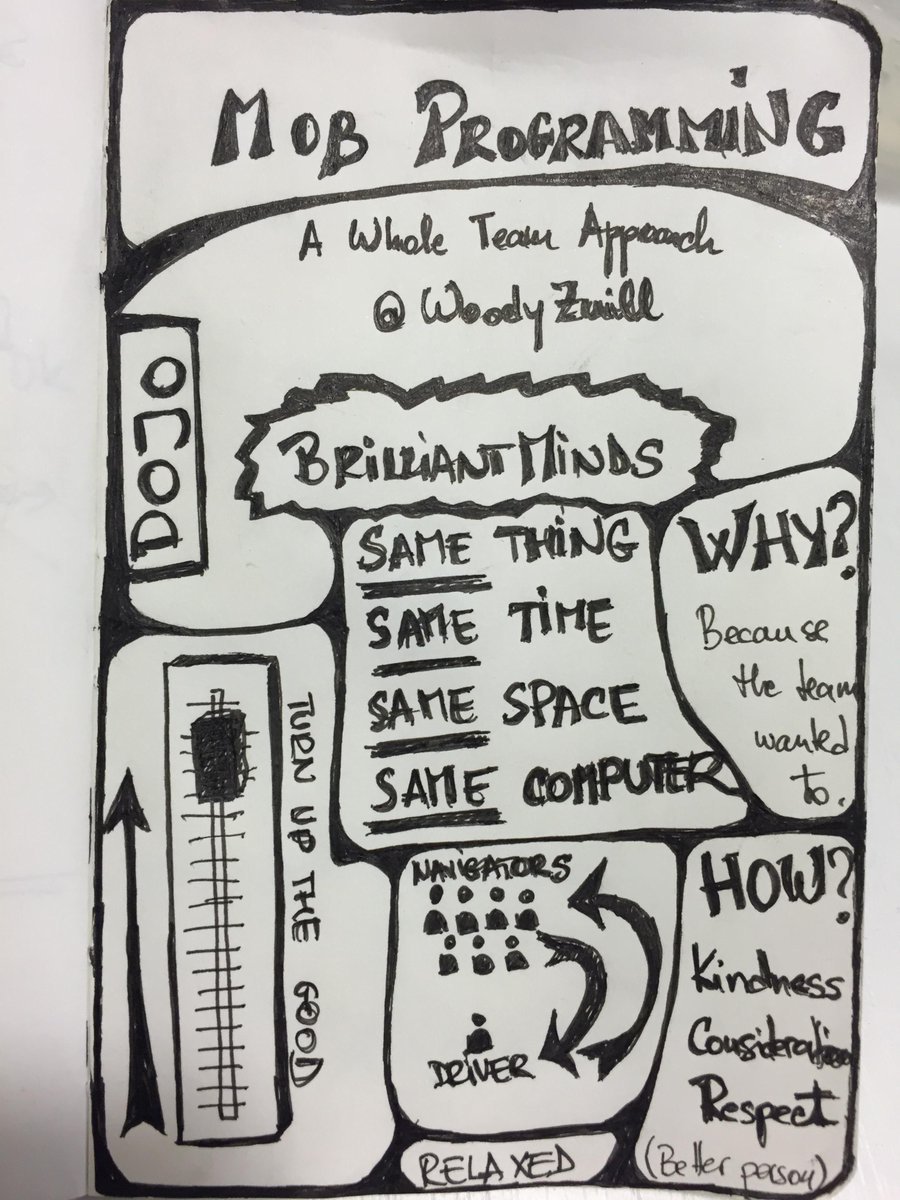 MOB PROGRAMMING
A Whole Team Approach
@WoodyZuill
DOJO
BRILLIANT MINDS
SAME THING
SAME TIME
SAME SPACE
SAME COMPUTER
WHY?
Because
the team
wanted
to.
TURN UP THE GOOD
NAVIGATORS
DRIVER
HOW?
Kindness
Consideration
Respect
(Better person)
RELAXED